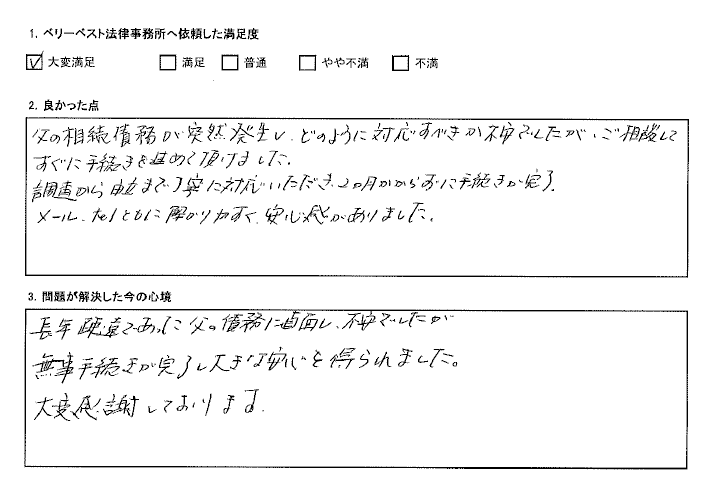 1. ベリーベスト法律事務所へ依頼した満足度
☑ 大変満足 □ 満足 □ 普通 □ やや不満 □ 不満
2. 良かった点
父の相続債務が突然発生し、どのように対応すべきか不安でしたが、ご相談して
すぐに手続きを進めて頂けました。
調査から申立まで丁寧に対応いただき、2ヶ月かからずに手続きが完了。
メール、telともに解かりやすく、安心感がありました。
3. 問題が解決した今の心境
長年疎遠であった父の債務に直面し、不安でしたが
無事手続きが完了し大きな安心を得られました。
大変感謝しております。